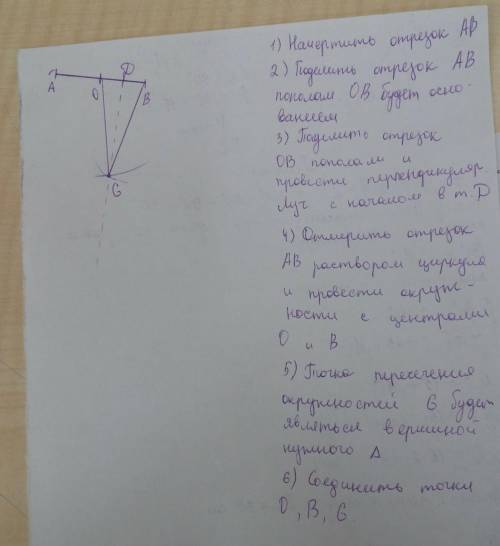 A
O
D
B
G
1) Начертить отрезок АВ
2) Поделить отрезок АВ
пополам OB будет осно-
ванием
3) Поделить отрезок
OB пополам и
провести перпендикуляр.
Луч с началом в т. D
4) Отмерить отрезок
АВ раствором циркуля
и провести окруж-
ности с центрами
O и B
5) Точка пересечения
окружностей G будет
являться вершиной
нужного Δ
6) Соединить точки
O, B, G